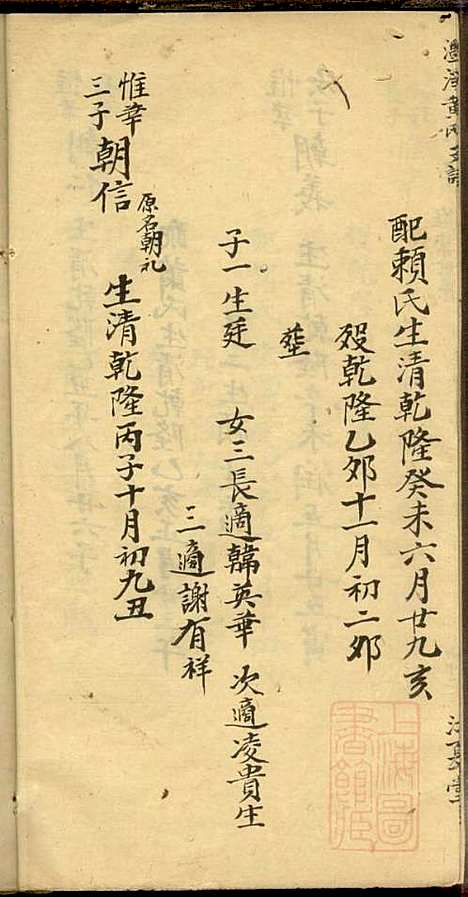 配賴氏生清乾隆癸未六月廿九亥
殁乾隆乙夘十一月初二夘
塟
子一生廷
女三長適韓英華 次適凌貴生
三適謝有祥
惟華
三子朝信
原名朝礼
生清乾隆丙子十月初九丑
上海圖書館藏